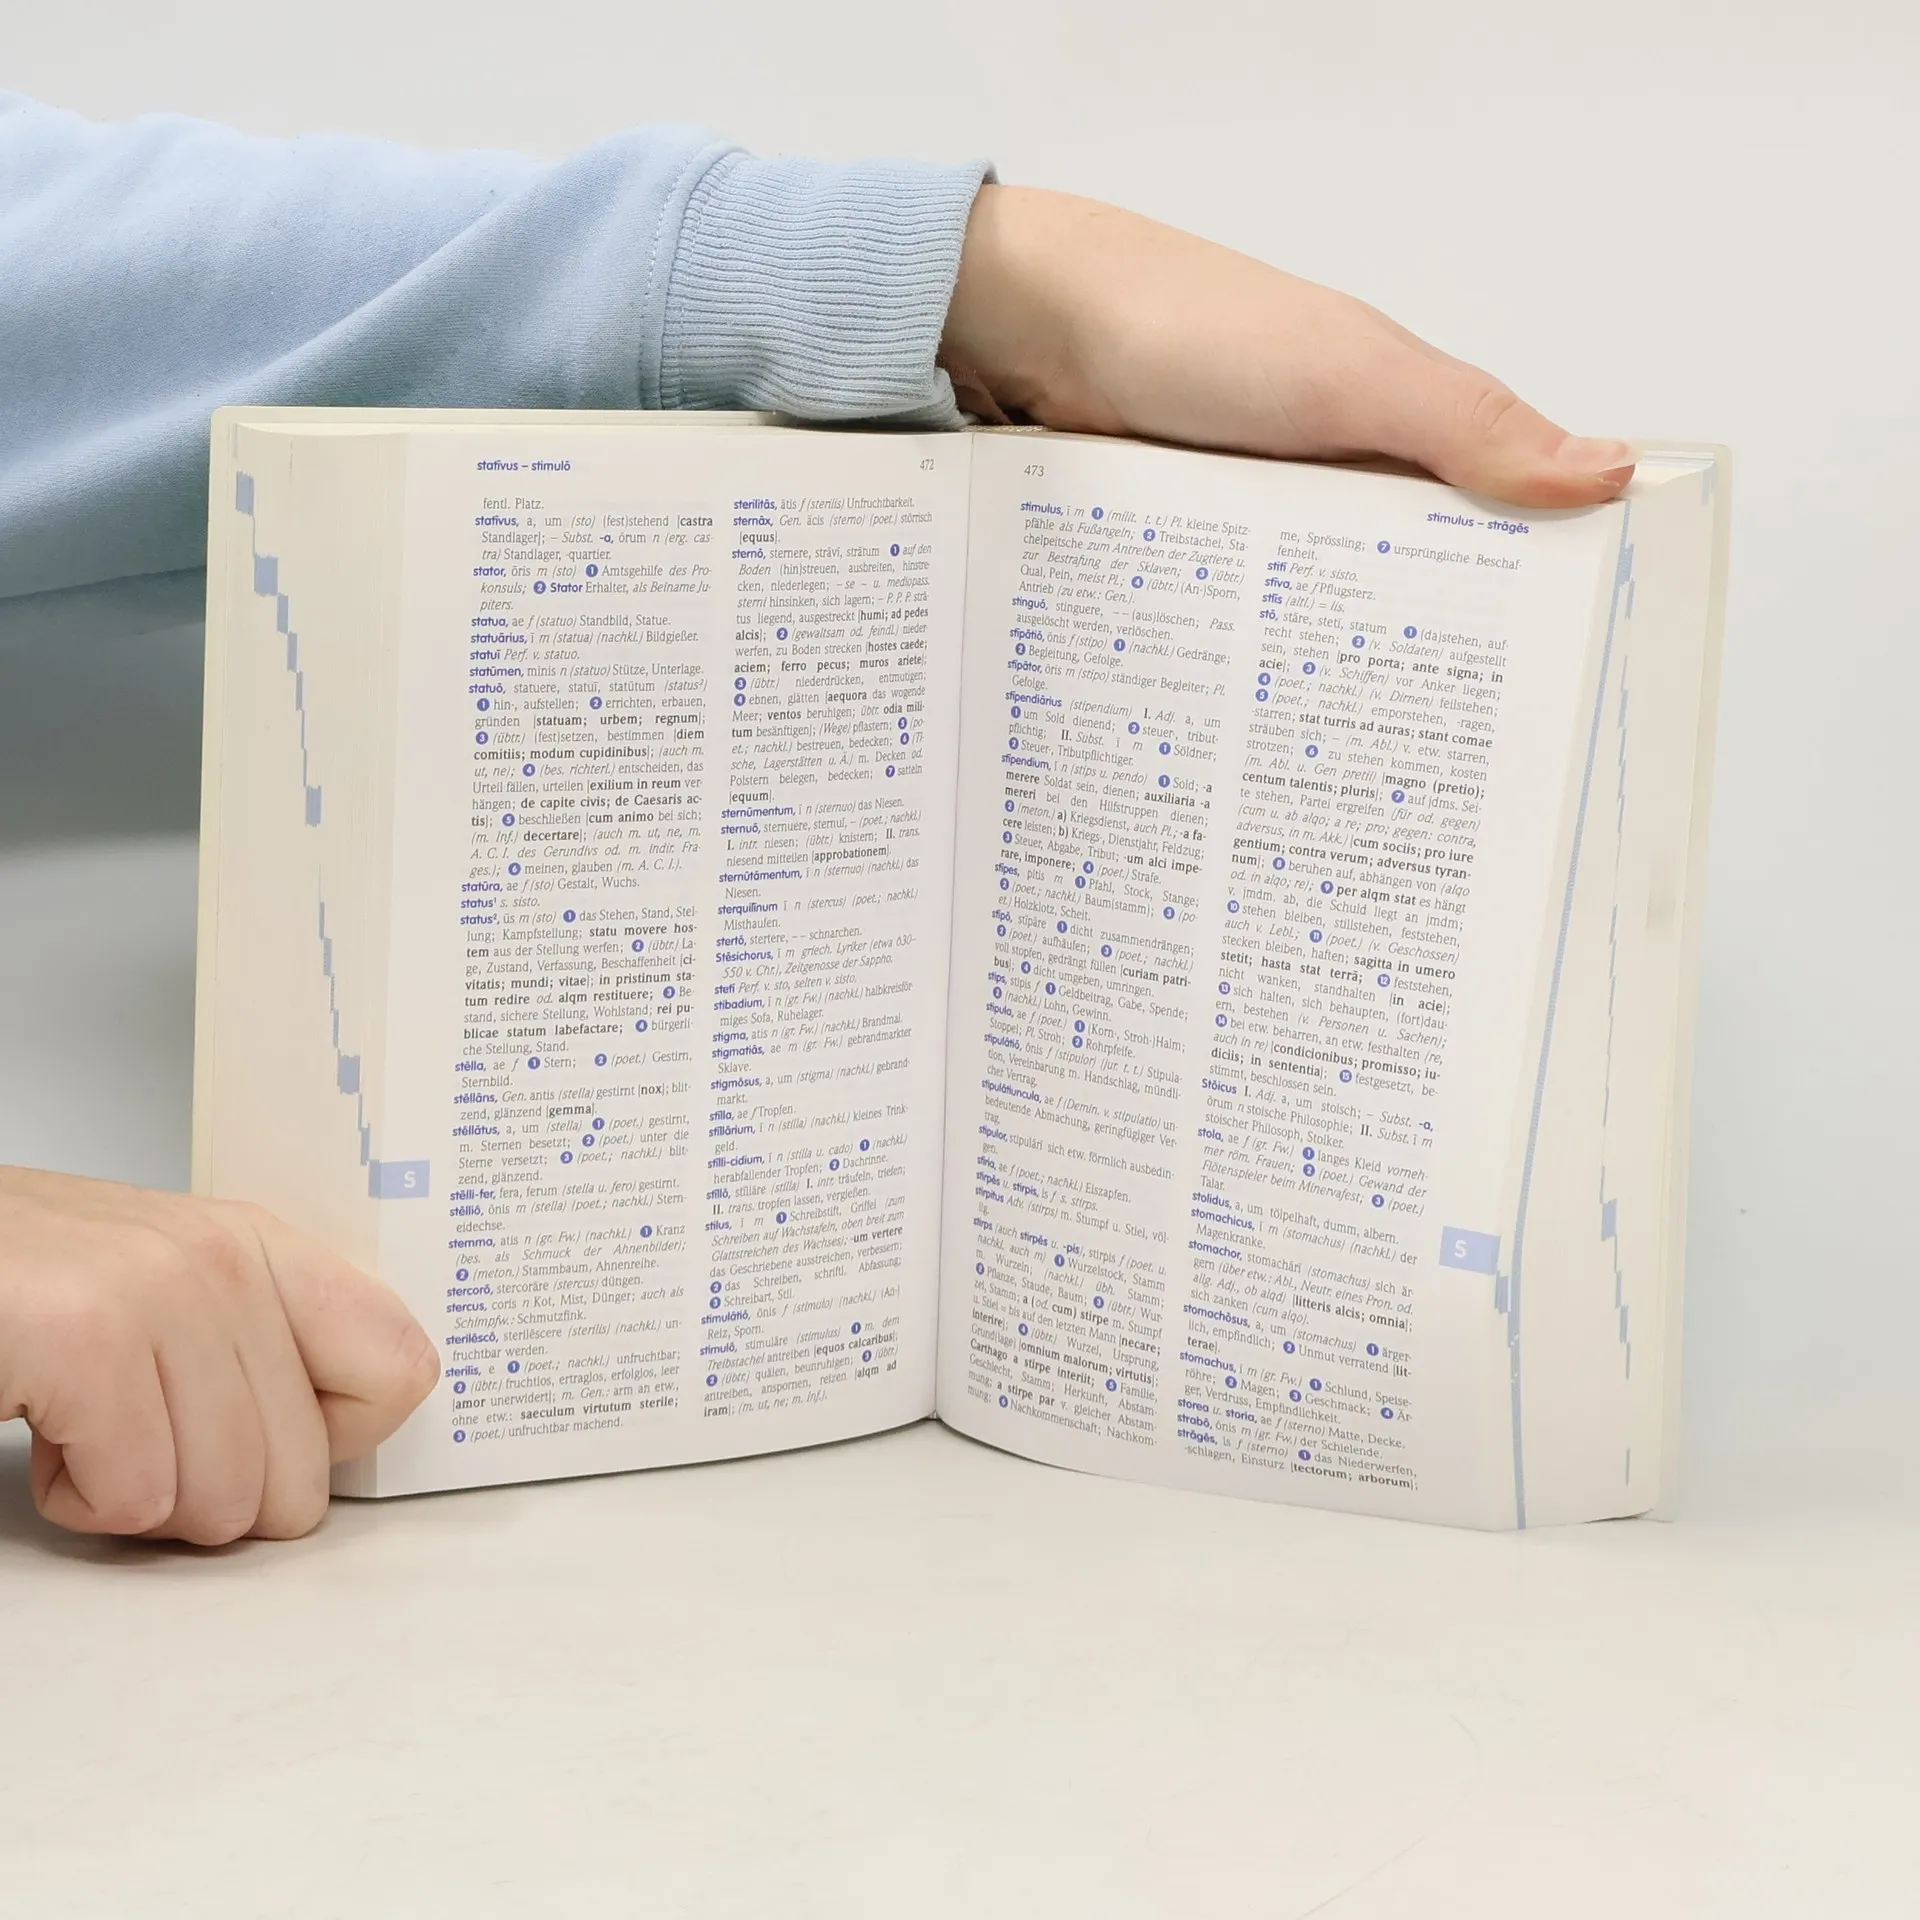 statīvus – stimulō
472
fentl. Platz.
statīvus, a, um (sto) (fest)stehend |castra
Standlager|; – Subst. -a, ōrum n (erg. cas-
tra) Standlager, -quartier.
stator, ōris m (sto) ❶ Amtsgehilfe des Pro-
konsuls; ❷ Stator Erhalter, als Beiname Ju-
piters.
statua, ae f (statuo) Standbild, Statue.
statuārius, ī m (statua) (nachkl.) Bildgießer.
statuī Perf. v. statuo.
statūmen, minis n (statuo) Stütze, Unterlage.
statuō, statuere, statuī, statūtum (status²)
❶ hin-, aufstellen; ❷ errichten, erbauen,
gründen |statuam; urbem; regnum|;
❸ (übtr.) (fest)setzen, bestimmen |diem
comitiis; modum cupidinibus|; (auch m.
ut, ne); ❹ (bes. richterl.) entscheiden, das
Urteil fällen, urteilen |exilium in reum ver-
hängen; de capite civis; de Caesaris ac-
tis|; ❺ beschließen |cum animo bei sich;
(m. Inf.) decertare|; (auch m. ut, ne, m.
A. C. I. des Gerundivs od. m. indir. Fra-
ges.); ❻ meinen, glauben (m. A. C. I.).
statūra, ae f (sto) Gestalt, Wuchs.
status¹ s. sisto.
status², ūs m (sto) ❶ das Stehen, Stand, Stel-
lung; Kampfstellung; statu movere hos-
tem aus der Stellung werfen; ❷ (übtr.) La-
ge, Zustand, Verfassung, Beschaffenheit |ci-
vitatis; mundi; vitae|; in pristinum sta-
tum redire od. alqm restituere; ❸ Be-
stand, sichere Stellung, Wohlstand; rei pu-
blicae statum labefactare; ❹ bürgerli-
che Stellung, Stand.
stēlla, ae f ❶ Stern; ❷ (poet.) Gestirn,
Sternbild.
stēllāns, Gen. antis (stella) gestirnt |nox|; blit-
zend, glänzend |gemma|.
stēllātus, a, um (stella) ❶ (poet.) gestirnt,
m. Sternen besetzt; ❷ (poet.) unter die
Sterne versetzt; ❸ (poet.; nachkl.) blit-
zend, glänzend.
stēlli-fer, fera, ferum (stella u. fero) gestirnt.
stēlliō, ōnis m (stella) (poet.; nachkl.) Stern-
eidechse.
stemma, atis n (gr. Fw.) (nachkl.) ❶ Kranz
(bes. als Schmuck der Ahnenbilder);
❷ (meton.) Stammbaum, Ahnenreihe.
stercorō, stercorāre (stercus) düngen.
stercus, coris n Kot, Mist, Dünger; auch als
Schimpfw.: Schmutzfink.
sterilēscō, sterilēscere (sterilis) (nachkl.) un-
fruchtbar werden.
sterilis, e ❶ (poet.; nachkl.) unfruchtbar;
❷ (übtr.) fruchtlos, ertraglos, erfolglos, leer
|amor unerwidert|; m. Gen.: arm an etw.,
ohne etw.: saeculum virtutum sterile;
❸ (poet.) unfruchtbar machend.
sterilitās, ātis f (sterilis) Unfruchtbarkeit.
sternāx, Gen. ācis (sterno) (poet.) störrisch
|equus|.
sternō, sternere, strāvī, strātum ❶ auf den
Boden (hin)streuen, ausbreiten, hinstre-
cken, niederlegen; – se ~ u. mediopass.
sterni hinsinken, sich lagern; – P. P. P. strā-
tus liegend, ausgestreckt |humi; ad pedes
alcis|; ❷ (gewaltsam od. feindl.) nieder-
werfen, zu Boden strecken |hostes caede;
aciem; ferro pecus; muros ariete|;
❸ (übtr.) niederdrücken, entmutigen;
❹ ebnen, glätten |aequora das wogende
Meer; ventos beruhigen; übtr. odia mili-
tum besänftigen|; (Wege) pflastern; ❺ (po-
et.; nachkl.) bestreuen, bedecken; ❻ (Ti-
sche, Lagerstätten u. Ä.) m. Decken od.
Polstern belegen, bedecken; ❼ satteln
|equum|.
sternūmentum, ī n (sternuo) das Niesen.
sternuō, sternuere, sternuī, – (poet.; nachkl.)
I. intr. niesen; (übtr.) knistern; II. trans.
niesend mitteilen |approbationem|.
sternūtāmentum, ī n (sternuo) (nachkl.) das
Niesen.
sterquilīnum ī n (stercus) (poet.; nachkl.)
Misthaufen.
stertō, stertere, – – schnarchen.
Stēsichorus, ī m griech. Lyriker (etwa 630–
550 v. Chr.), Zeitgenosse der Sappho.
stetī Perf. v. sto, selten v. sisto.
stibadium, ī n (gr. Fw.) (nachkl.) halbkreisför-
miges Sofa, Ruhelager.
stigma, atis n (gr. Fw.) (nachkl.) Brandmal.
stigmatiās, ae m (gr. Fw.) gebrandmarkter
Sklave.
stigmōsus, a, um (stigma) (nachkl.) gebrand-
markt.
stīlla, ae f Tropfen.
stīllārium, ī n (stilla) (nachkl.) kleines Trink-
geld.
stīlli-cidium, ī n (stilla u. cado) ❶ (nachkl.)
herabfallender Tropfen; ❷ Dachrinne.
stīllō, stīllāre (stilla) I. intr. träufeln, triefen;
II. trans. tropfen lassen, vergießen.
stilus, ī m ❶ Schreibstift, Griffel (zum
Schreiben auf Wachstafeln, oben breit zum
Glattstreichen des Wachses); -um vertere
das Geschriebene ausstreichen, verbessern;
❷ das Schreiben, schriftl. Abfassung;
❸ Schreibart, Stil.
stimulātiō, ōnis f (stimulo) (nachkl.) (An-)
Reiz, Sporn.
stimulō, stimulāre (stimulus) ❶ m. dem
Treibstachel antreiben |equos calcaribus|;
❷ (übtr.) quälen, beunruhigen; ❸ (übtr.)
antreiben, anspornen, reizen |alqm ad
iram|; (m. ut, ne; m. Inf.).
S
473
stimulus – strāgēs
stimulus, ī m ❶ (milit. t. t.) Pl. kleine Spitz-
pfähle als Fußangeln; ❷ Treibstachel, Sta-
chelpeitsche zum Antreiben der Zugtiere u.
zur Bestrafung der Sklaven; ❸ (übtr.)
Qual, Pein, meist Pl.; ❹ (übtr.) (An-)Sporn,
Antrieb (zu etw.: Gen.).
stinguō, stinguere, – – (aus)löschen; Pass.
ausgelöscht werden, verlöschen.
stīpātiō, ōnis f (stipo) ❶ (nachkl.) Gedränge;
❷ Begleitung, Gefolge.
stīpātor, ōris m (stipo) ständiger Begleiter; Pl.
Gefolge.
stīpendiārius (stipendium) I. Adj. a, um
❶ um Sold dienend; ❷ steuer-, tribut-
pflichtig; II. Subst. ī m ❶ Söldner;
❷ Steuer-, Tributpflichtiger.
stīpendium, ī n (stips u. pendo) ❶ Sold; -a
merere Soldat sein, dienen; auxiliaria -a
mereri bei den Hilfstruppen dienen;
❷ (meton.) a) Kriegsdienst, auch Pl.; -a fa-
cere leisten; b) Kriegs-, Dienstjahr, Feldzug;
❸ Steuer, Abgabe, Tribut; -um alci impe-
rare, imponere; ❹ (poet.) Strafe.
stīpes, pitis m ❶ Pfahl, Stock, Stange;
❷ (poet.; nachkl.) Baum(stamm); ❸ (po-
et.) Holzklotz, Scheit.
stīpō, stīpāre ❶ dicht zusammendrängen;
❷ (poet.) aufhäufen; ❸ (poet.; nachkl.)
voll stopfen, gedrängt füllen |curiam patri-
bus|; ❹ dicht umgeben, umringen.
stips, stipis f ❶ Geldbeitrag, Gabe, Spende;
❷ (nachkl.) Lohn, Gewinn.
stipula, ae f (poet.) ❶ (Korn-, Stroh-)Halm;
Stoppel; Pl. Stroh; ❷ Rohrpfeife.
stipulātiō, ōnis f (stipulor) (jur. t. t.) Stipula-
tion, Vereinbarung m. Handschlag, mündli-
cher Vertrag.
stipulātiuncula, ae f (Demin. v. stipulatio) un-
bedeutende Abmachung, geringfügiger Ver-
trag.
stipulor, stipulārī sich etw. förmlich ausbedin-
gen.
stīria, ae f (poet.; nachkl.) Eiszapfen.
stirpēs u. stirpis, is f s. stirps.
stirpitus Adv. (stirps) m. Stumpf u. Stiel, völ-
lig.
stirps (auch stirpēs u. -pis), stirpis f (poet. u.
nachkl. auch m) ❶ Wurzelstock, Stamm
m. Wurzeln; (nachkl.) übh. Stamm;
❷ Pflanze, Staude, Baum; ❸ (übtr.) Wur-
zel, Stamm; a (od. cum) stirpe m. Stumpf
u. Stiel = bis auf den letzten Mann |necare;
interire|; ❹ (übtr.) Wurzel, Ursprung,
Grund(lage) |omnium malorum; virtutis|;
Carthago a stirpe interiit; ❺ Familie,
Geschlecht, Stamm; Herkunft, Abstam-
mung; a stirpe par v. gleicher Abstam-
mung; ❻ Nachkommenschaft; Nachkom-
me, Sprössling; ❼ ursprüngliche Beschaf-
fenheit.
stitī Perf. v. sisto.
stīva, ae f Pflugsterz.
stlīs (altl.) = lis.
stō, stāre, stetī, statum ❶ (da)stehen, auf-
recht stehen; ❷ (v. Soldaten) aufgestellt
sein, stehen |pro porta; ante signa; in
acie|; ❸ (v. Schiffen) vor Anker liegen;
❹ (poet.; nachkl.) (v. Dirnen) feilstehen;
❺ (poet.; nachkl.) emporstehen, -ragen,
-starren; stat turris ad auras; stant comae
sträuben sich; – (m. Abl.) v. etw. starren,
strotzen; ❻ zu stehen kommen, kosten
(m. Abl. u. Gen pretii) |magno (pretio);
centum talentis; pluris|; ❼ auf jdms. Sei-
te stehen, Partei ergreifen (für od. gegen)
(cum u. ab alqo; a re; pro; gegen: contra,
adversus, in m. Akk.) |cum sociis; pro iure
gentium; contra verum; adversus tyran-
num|; ❽ beruhen auf, abhängen von (alqo
od. in alqo; re); ❾ per alqm stat es hängt
v. jmdm. ab, die Schuld liegt an jmdm;
❿ stehen bleiben, stillstehen, feststehen,
auch v. Lebl.; ⓫ (poet.) (v. Geschossen)
stecken bleiben, haften; sagitta in umero
stetit; hasta stat terrā; ⓬ feststehen,
nicht wanken, standhalten |in acie|;
⓭ sich halten, sich behaupten, (fort)dau-
ern, bestehen (v. Personen u. Sachen);
⓮ bei etw. beharren, an etw. festhalten (re,
auch in re) |condicionibus; promisso; iu-
diciis; in sententia|; ⓯ festgesetzt, be-
stimmt, beschlossen sein.
Stōicus I. Adj. a, um stoisch; – Subst. -a,
ōrum n stoische Philosophie; II. Subst. ī m
stoischer Philosoph, Stoiker.
stola, ae f (gr. Fw.) ❶ langes Kleid vorneh-
mer röm. Frauen; ❷ (poet.) Gewand der
Flötenspieler beim Minervafest; ❸ (poet.)
Talar.
stolidus, a, um tölpelhaft, dumm, albern.
stomachicus, ī m (stomachus) (nachkl.) der
Magenkranke.
stomachor, stomachārī (stomachus) sich är-
gern (über etw.: Abl., Neutr. eines Pron. od.
allg. Adj., ob alqd) |litteris alcis; omnia|;
sich zanken (cum alqo).
stomachōsus, a, um (stomachus) ❶ ärger-
lich, empfindlich; ❷ Unmut verratend |lit-
terae|.
stomachus, ī m (gr. Fw.) ❶ Schlund, Speise-
röhre; ❷ Magen; ❸ Geschmack; ❹ Är-
ger, Verdruss, Empfindlichkeit.
storea u. storia, ae f (sterno) Matte, Decke.
strabō, ōnis m (gr. Fw.) der Schielende.
strāgēs, is f (sterno) ❶ das Niederwerfen,
-schlagen, Einsturz |tectorum; arborum|;
S